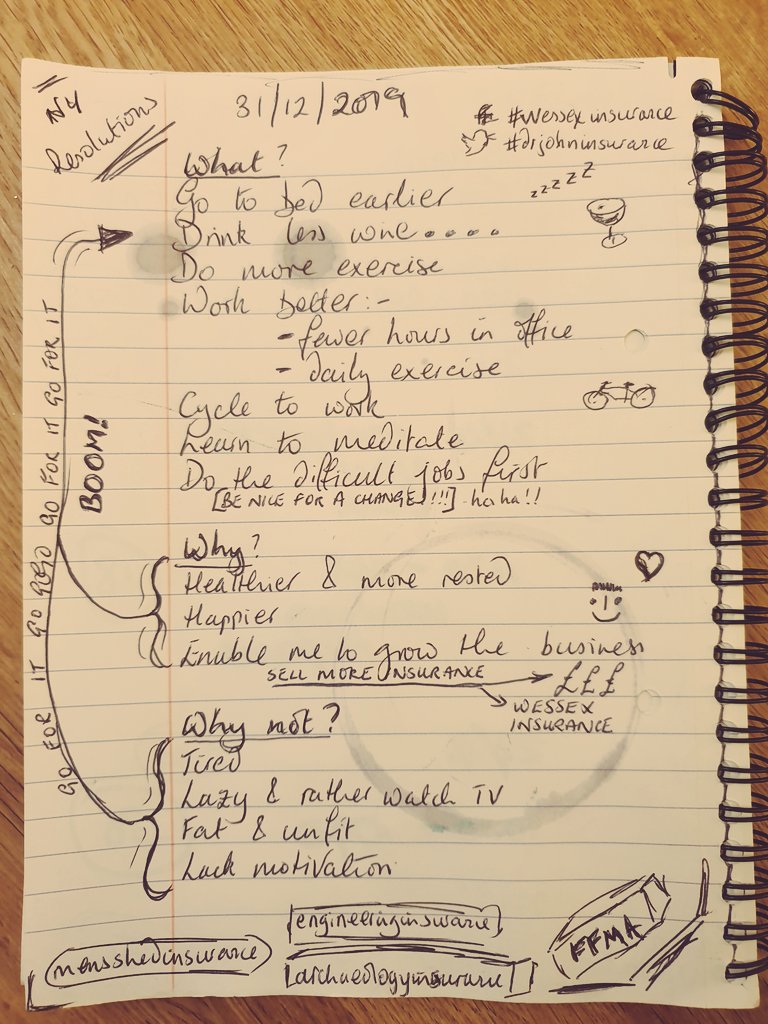 NY
Resolutions
31/12/2019
#wessexinsurance
#drjohninsurance
What?
Go to bed earlier
zzzzz
Drink less wine....
Do more exercise
Work better:-
- fewer hours in office
- daily exercise
Cycle to work
Learn to meditate
Do the difficult jobs first
[BE NICE FOR A CHANGE!!!!] haha!!
BOOM!
GO FOR IT GO GO GO GO FOR IT GO FOR IT
Why?
Healthier & more rested
Happier
Enable me to grow the business
SELL MORE INSURANCE
£££
WESSEX
INSURANCE
Why not?
Tired
Lazy & rather watch TV
Fat & unfit
Lack motivation
engineeringinsurance
mensshedinsurance
archaeologyinsurance
FFMA